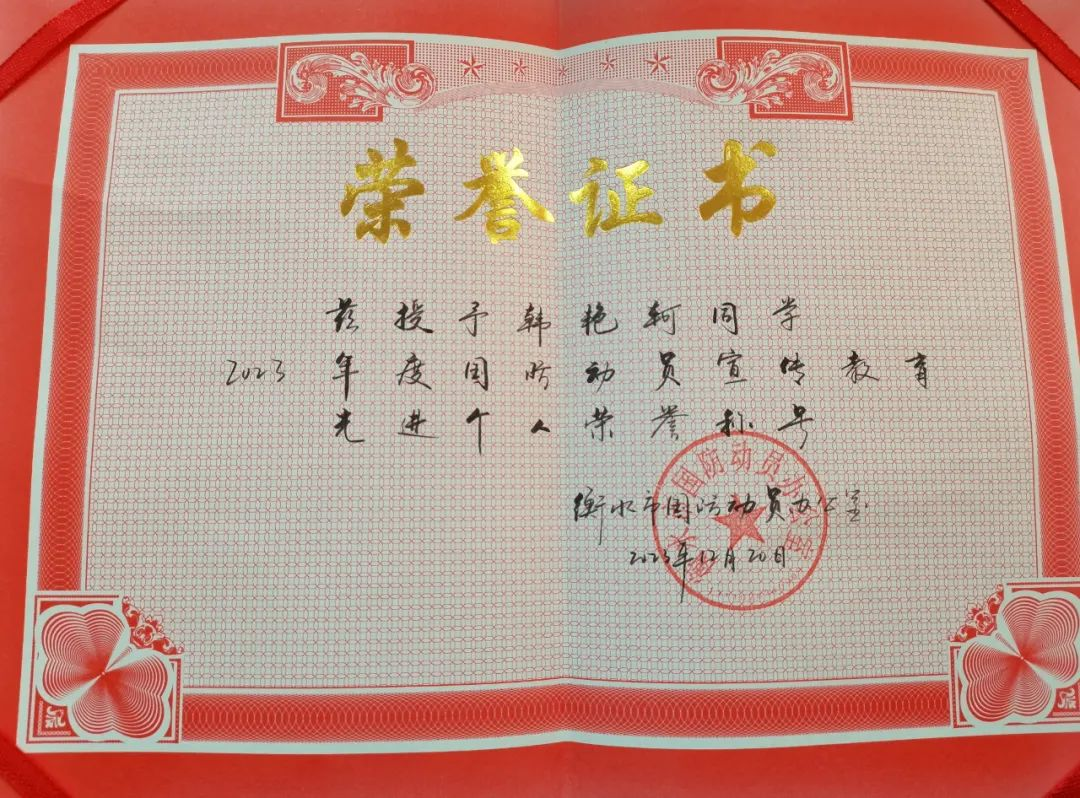 荣誉证书
兹授予韩艳轲同学
2023年度国防动员宣传教育
先进个人荣誉称号
衡水市国防动员办公室
2023年12月20日
衡水市国防动员办公室